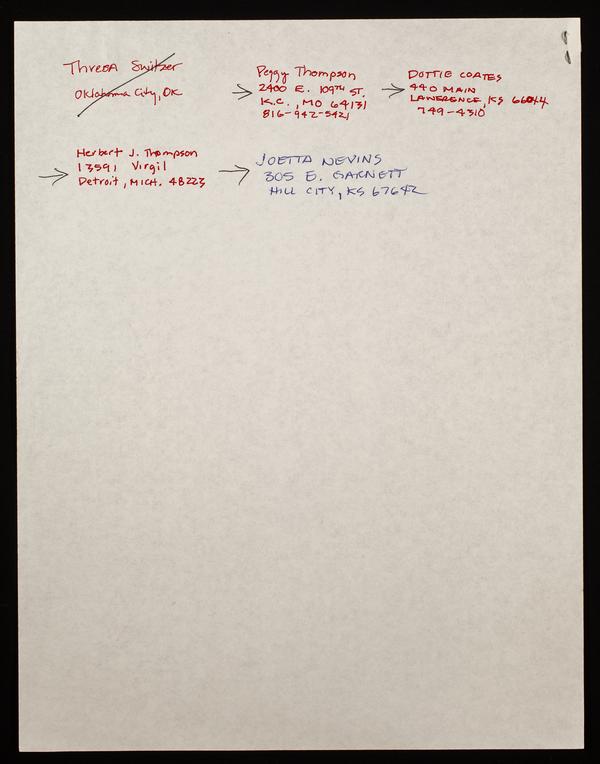 Thresa Switzer
Oklahoma City, OK
Peggy Thompson
2400 E. 109TH ST.
K.C., MO 64131
816-942-5421
DOTTIE COATES
440 MAIN
LAWERENCE, KS 66044
749-4310
Herbert J. Thompson
13591 Virgil
Detroit, MICH. 48223
JOETTA NEVINS
305 E. GARNETT
HILL CITY, KS 67642